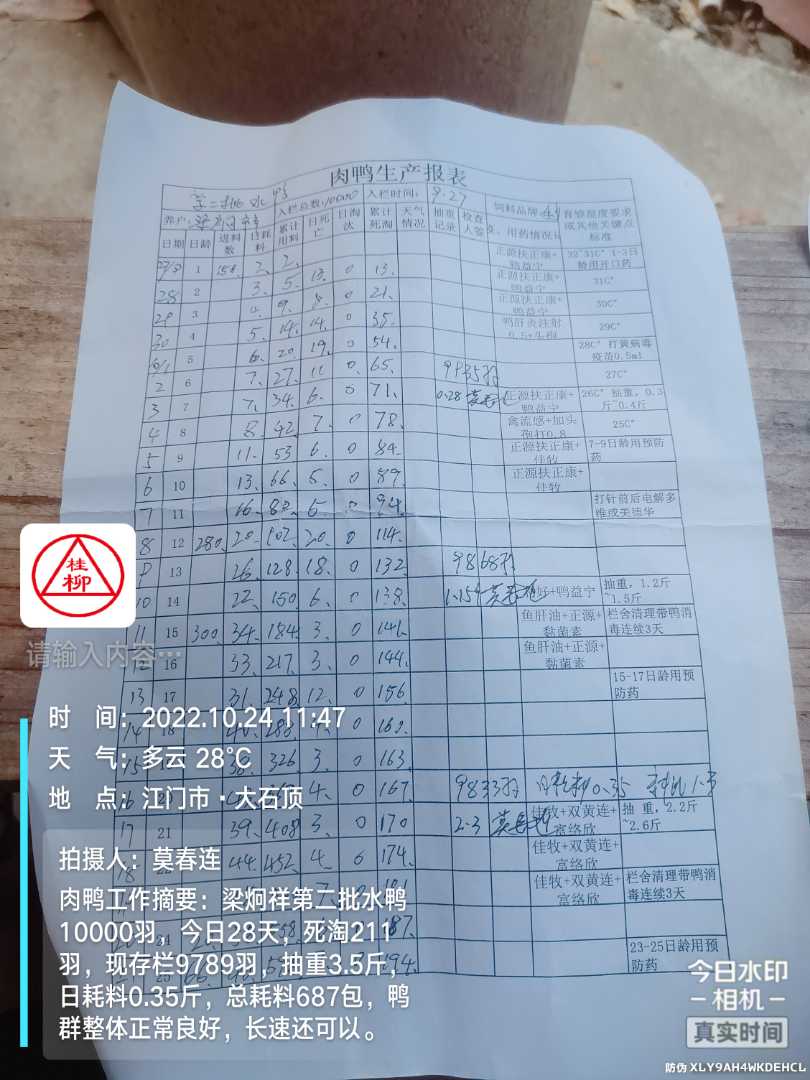 肉鸭生产报表
第二批水鸭 入栏总数:10000 入栏时间: 9.27 饲料品牌
养户: 天气情况 抽重记录 检查人签 用药情况 育雏温度要求或其他关键点标准
日期 日龄 进料数 日耗料 累计用料 日死亡 日淘汰 累计死淘
1 2 2 0 13 正源扶正康+鸭益宁 32°31C° 1-3日龄用开口药
28 2 3 5 13 0 21 正源扶正康+鸭益宁 31C°
29 3 9 8 0 35 正源扶正康+鸭益宁 30C°
30 4 5 14 14 0 54 鸭肝炎注射 29C°
5 6 20 19 0 65 28C° 打黄病毒疫苗0.5ml
2 6 7 27 11 0 71 9935羽 27C°
3 7 7 34 6 0 78 0.28 正源扶正康+鸭益宁 26C° 抽重,0.3斤~0.4斤
4 8 8 42 7 禽流感+加头孢打0.8 25C°
5 9 11 53 6 0 84 正源扶正康+佳牧 7-9日龄用预防药
6 10 13 66 5 0 89 正源扶正康+佳牧
7 11 16 82 5 0 94 打针前后电解多维或美德华
8 12 280 20 102 20 0 114
9 13 26 128 18 0 132 9868羽
10 14 22 150 6 0 138 好+鸭益宁 抽重,1.2斤~1.5斤
11 15 300 34 184 3 0 141 鱼肝油+正源+黏菌素 栏舍清理带鸭消毒连续3天
12 16 33 217 3 0 144 鱼肝油+正源+黏菌素
13 17 31 248 12 0 156 15-17日龄用预防药
14 18 0 160
15 326 3 0 163
4 0 167 9833羽 日耗料0.35 料比1.3
17 21 39 408 3 0 170 2.3 佳牧+双黄连+富络欣 抽重,2.2斤~2.6斤
18 44 452 4 0 174 佳牧+双黄连+富络欣
佳牧+双黄连+富络欣 栏舍清理带鸭消毒连续3天
24 187
194 23-25日龄用预防药
桂柳
请输入内容…
时 间: 2022.10.24 11:47
天 气: 多云 28℃
地 点: 江门市·大石顶
拍摄人: 莫春连
肉鸭工作摘要: 梁炯祥第二批水鸭
10000羽, 今日28天, 死淘211
羽, 现存栏9789羽, 抽重3.5斤,
日耗料0.35斤, 总耗料687包, 鸭
群整体正常良好, 长速还可以。
今日水印
相机
真实时间
防伪 XLY9AH4WKDEHCL